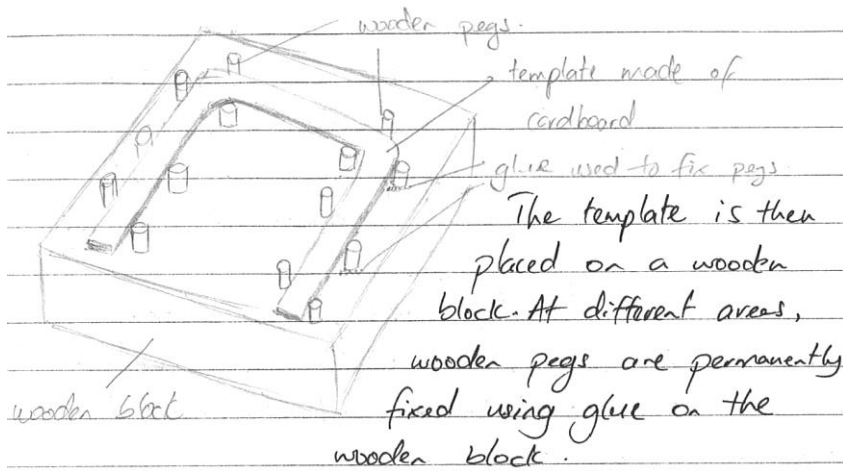 wooden pegs.
template made of
cardboard
glue used to fix pegs
The template is then
placed on a wooden
block. At different areas,
wooden pegs are permanently
fixed using glue on the
wooden block.
wooden block